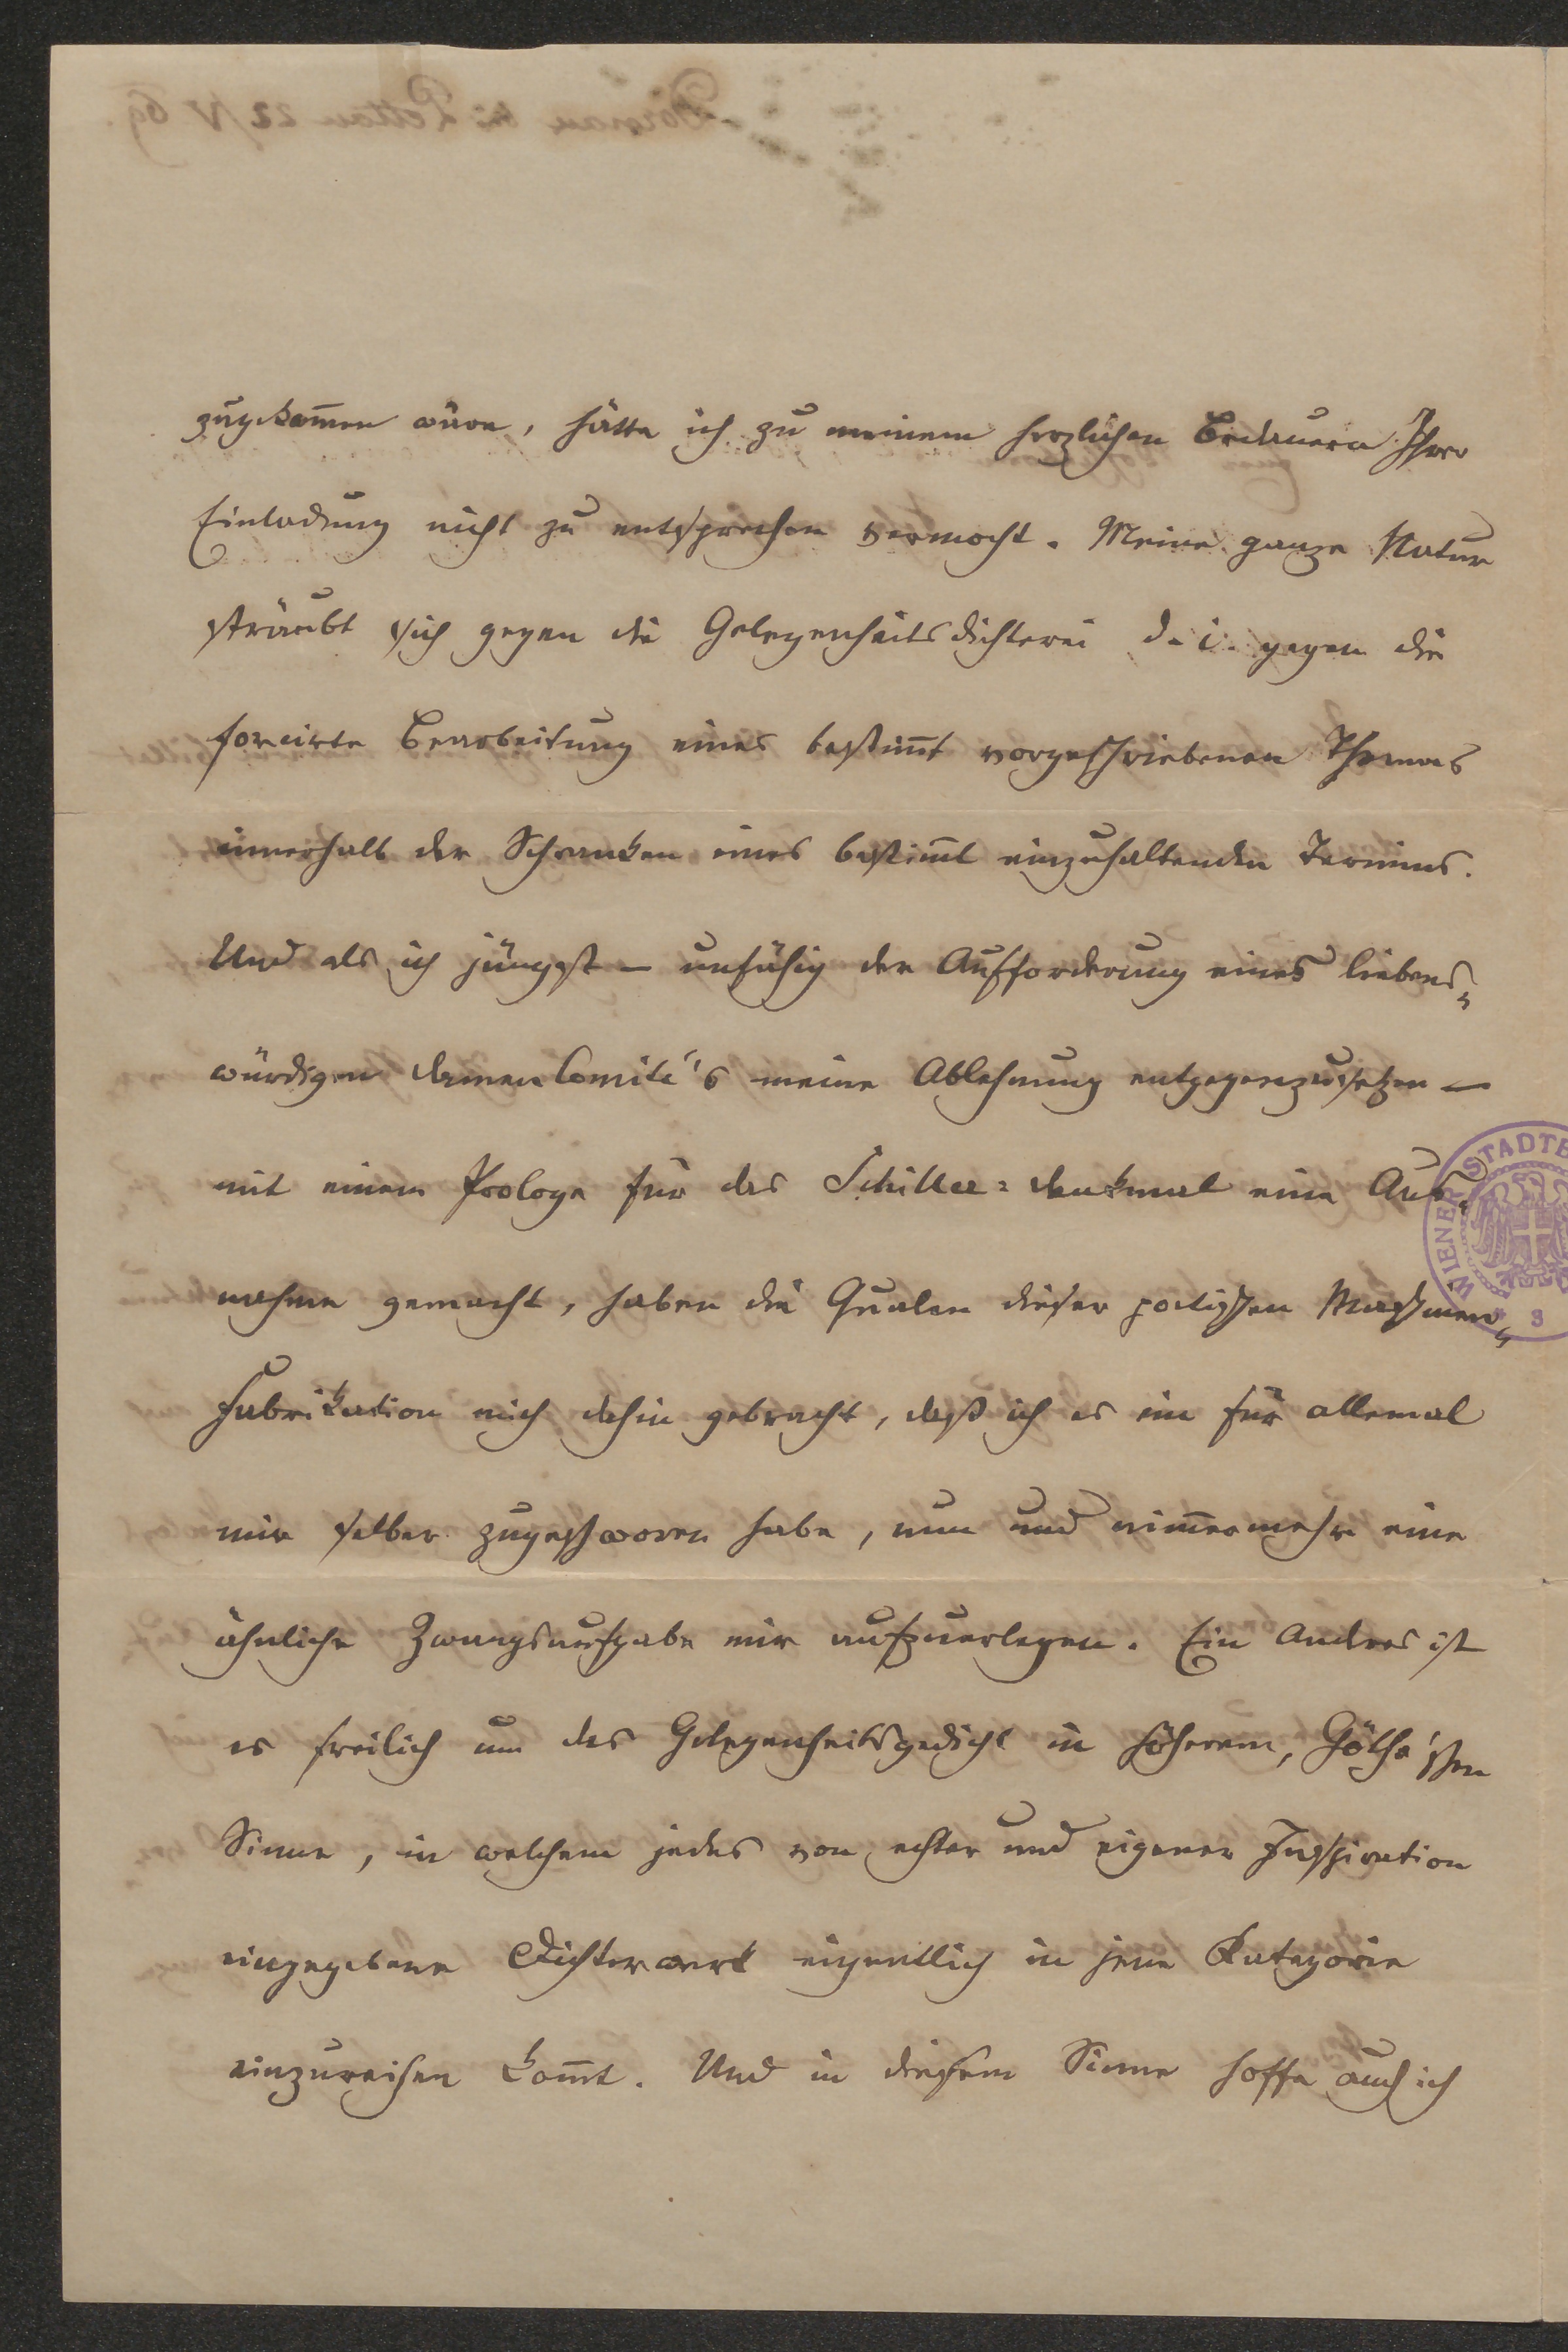 zugekom̄en wäre, hätte ich zu meinem herzlichen Bedauern Ihrer
Einladung nicht zu entsprechen vermocht. Meine ganze Natur
sträubt sich gegen die Gelegenheitsdichterei d. i. gegen die
forcirte Bearbeitung eines bestim̄t vorgeschriebenen Themas
innerhalb der Schranken eines bestim̄t einzuhaltenden Termins.
Und als ich jüngst – unfähig der Aufforderung eines liebens„
würdigen Damen Comité's meine Ablehnung entgegenzusetzen –
mit einem Prologe für das Schiller=Denkmal eine Aus„
nahme gemacht, haben die Qualen dieser poetischen Maschinen„
Fabrikation mich dahin gebracht, daß ich es ein für allemal
mir selber zugeschworen habe, nun und nim̄ermehr eine
ähnliche Zwangsaufgabe mir aufzuerlegen. Ein Andres ist
es freilich um das Gelegenheitsgedicht in höherem, Göthe'schen
Sinne, in welchem jedes von echter und eigener Inspiration
eingegebene Dichterwerk eigentlich in jene Kategorie
einzureihen kom̄t. Und in diesem Sinne hoffe auch ich
WIENER STADTB